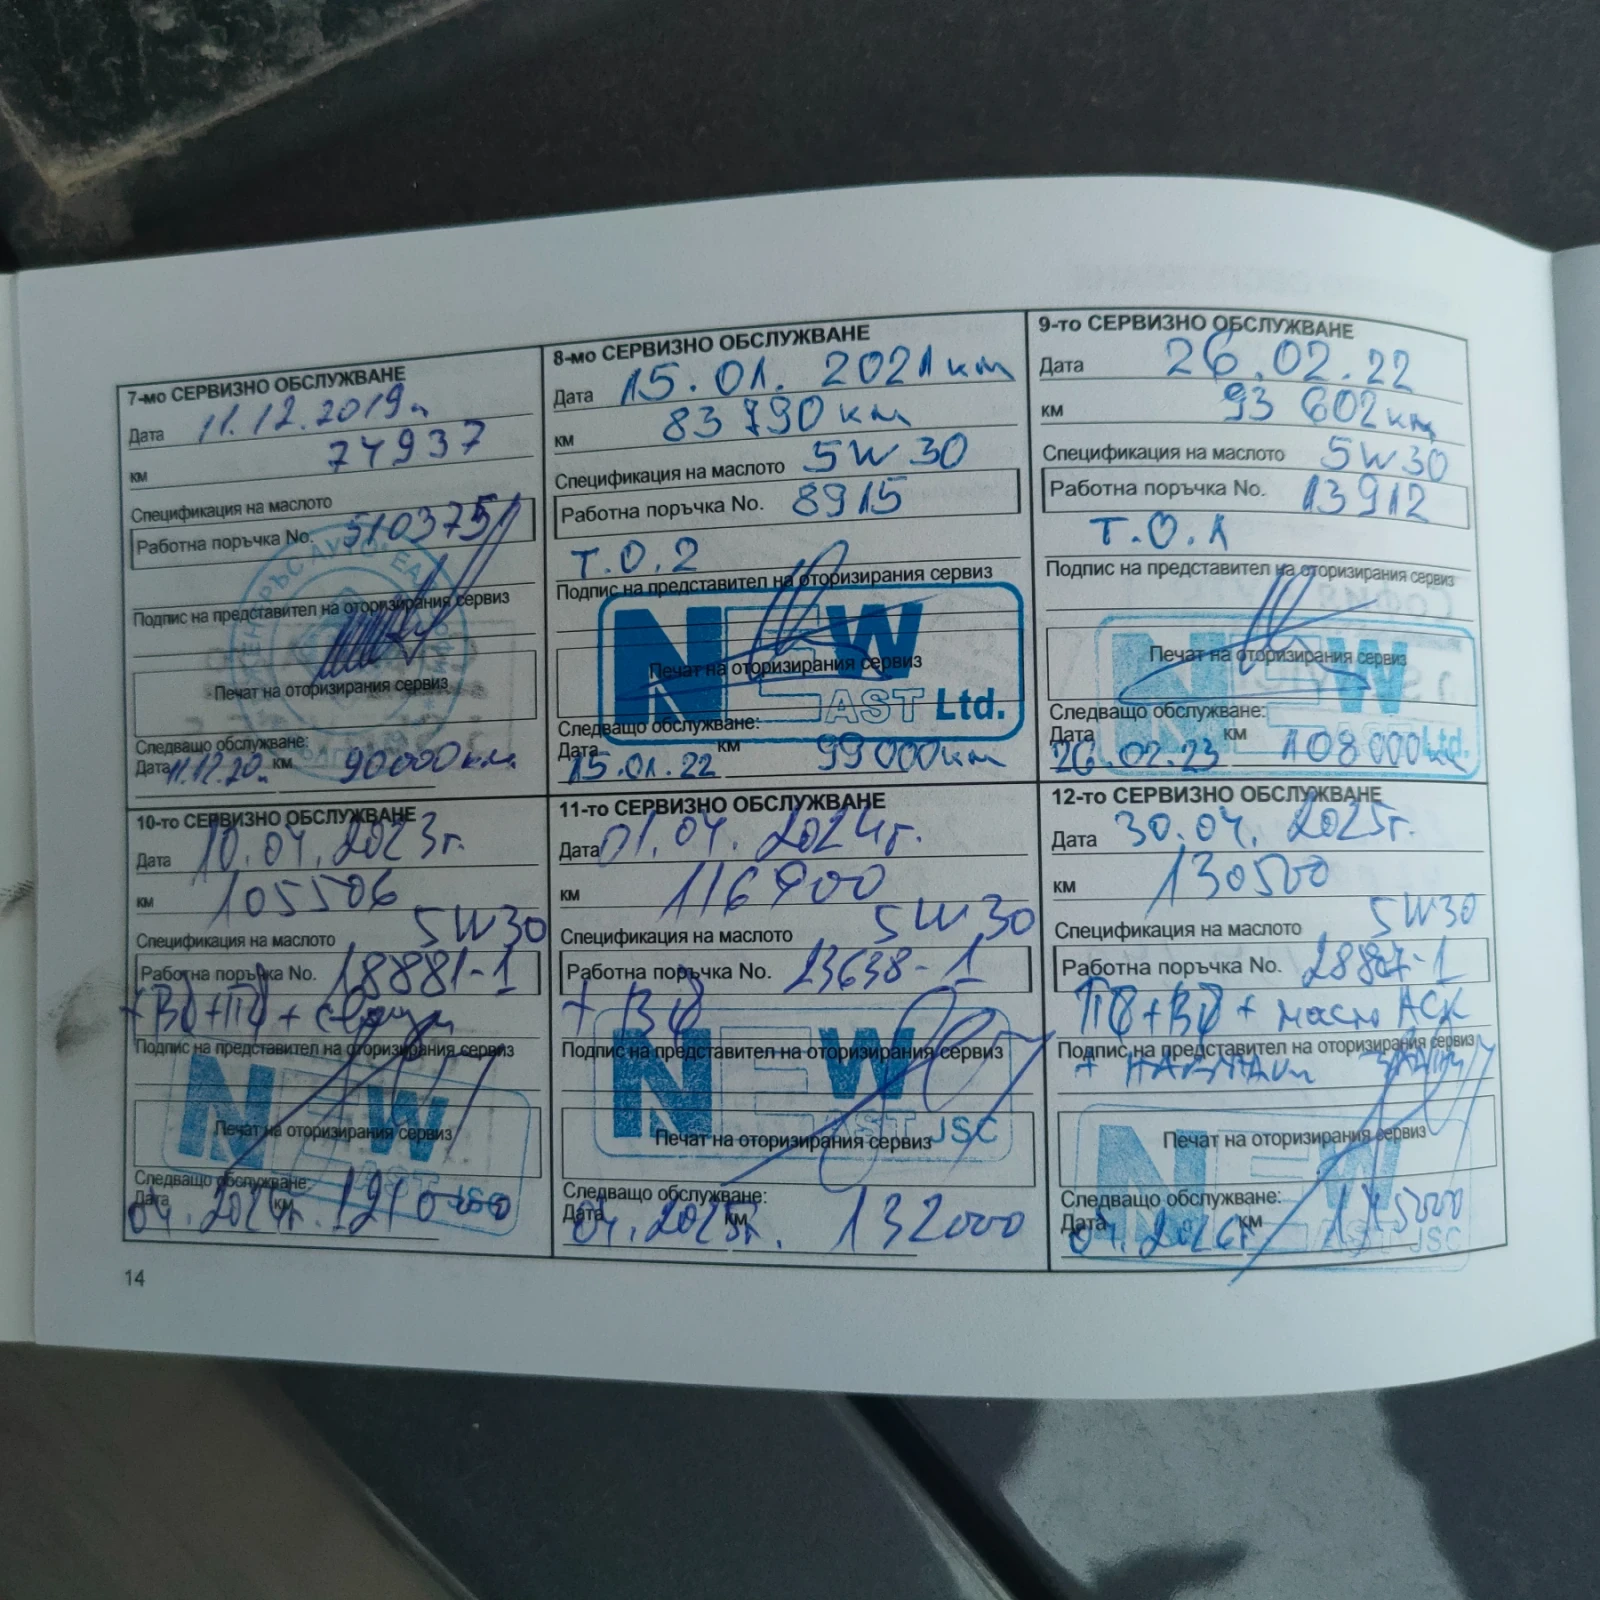 7-мо СЕРВИЗНО ОБСЛУЖВАНЕ
Дата 11.12.2019г.
км 74937
Спецификация на маслото
Работна поръчка No. 5103751
Подпис на представител на оторизирания сервиз
Печат на оторизирания сервиз
Следващо обслужване:
Дата 11.12.20г. км 90000км.
8-мо СЕРВИЗНО ОБСЛУЖВАНЕ
Дата 15.01.2021 км
км 83790 км
Спецификация на маслото 5W30
Работна поръчка No. 8915
Т.О.2
Подпис на представител на оторизирания сервиз
NEW
Печат на оторизирания сервиз
EAST Ltd.
Следващо обслужване:
Дата 15.01.22 км 99000км
9-то СЕРВИЗНО ОБСЛУЖВАНЕ
Дата 26.02.22
км 93602км
Спецификация на маслото 5W30
Работна поръчка No. 13912
Т.О.1
Подпис на представител на оторизирания сервиз
NEW
Печат на оторизирания сервиз
Ltd.
Следващо обслужване:
Дата 26.02.23 км 108000км
10-то СЕРВИЗНО ОБСЛУЖВАНЕ
Дата 10.04.2023г.
км 105506
Спецификация на маслото 5W30
Работна поръчка No. 18881-1
+ВФ+ПФ+свещи
Подпис на представител на оторизирания сервиз
NEW
Печат на оторизирания сервиз
EAST JSC
Следващо обслужване:
Дата 04.2024г. км
11-то СЕРВИЗНО ОБСЛУЖВАНЕ
Дата 01.04.2024г.
км 116900
Спецификация на маслото 5W30
Работна поръчка No. 23638-1
+ВФ
Подпис на представител на оторизирания сервиз
NEW
EAST JSC
Печат на оторизирания сервиз
Следващо обслужване:
Дата 04.2025г. км 132000
12-то СЕРВИЗНО ОБСЛУЖВАНЕ
Дата 30.04.2025г.
км 130500
Спецификация на маслото 5W30
Работна поръчка No. 28887-1
ПФ+ВФ+масло АСК
Подпис на представител на оторизирания сервиз
+ накладки задни
NEW
Печат на оторизирания сервиз
EAST JSC
Следващо обслужване:
Дата 04.2026г. км 145000
14